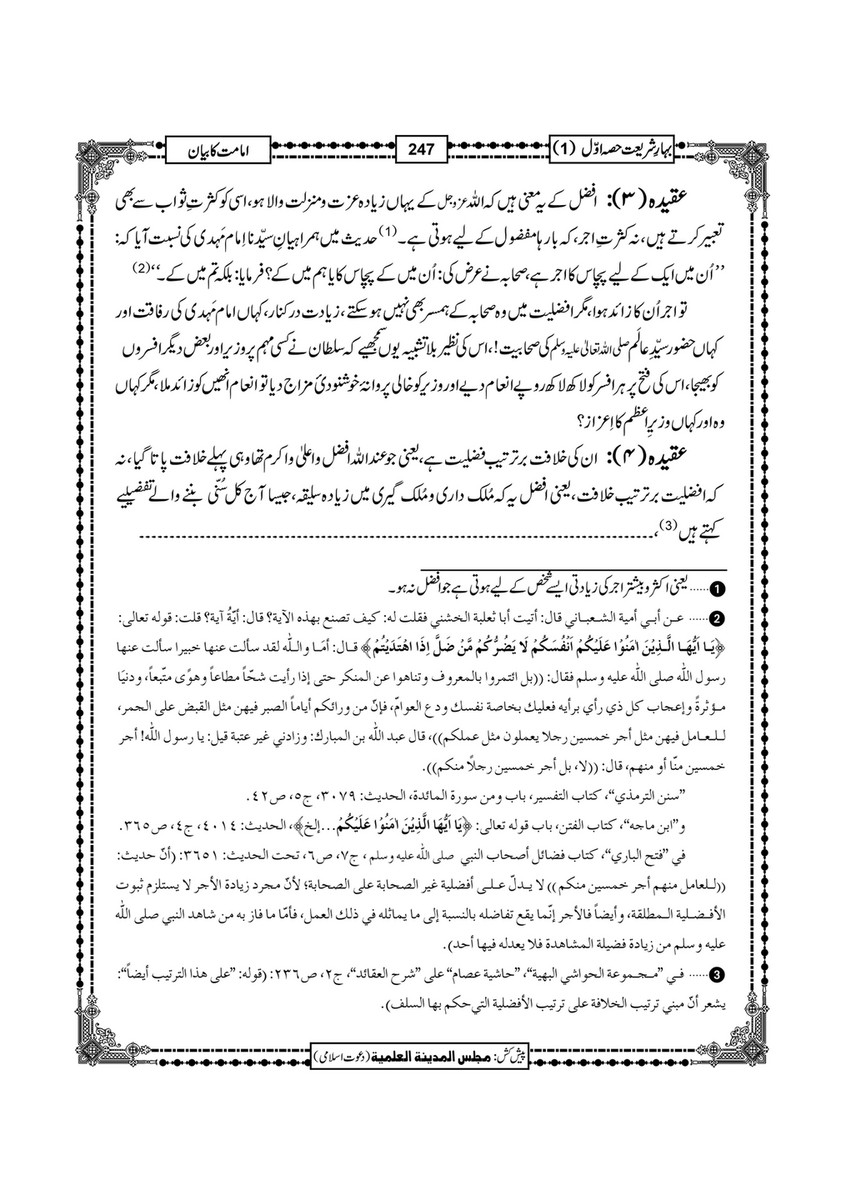 بہارِ شریعت حصہ اوّل (1)
247
امامت کا بیان
عقیدہ (۳): افضل کے یہ معنی ہیں کہ اللہ عزوجل کے یہاں زیادہ عزت و منزلت والا ہو، اسی کو کثرتِ ثواب سے بھی
تعبیر کرتے ہیں، نہ کثرتِ اجر، کہ بارہا مفضول کے لیے ہوتی ہے۔(1) حدیث میں ہمراہیانِ سیّدنا اِمام مَہدی کی نسبت آیا کہ:
’’اُن میں ایک کے لیے پچاس کا اجر ہے، صحابہ نے عرض کی: اُن میں کے پچاس کا یا ہم میں کے؟ فرمایا: بلکہ تم میں کے۔‘‘(2)
تو اجر اُن کا زائد ہوا، مگر افضلیت میں وہ صحابہ کے ہمسر بھی نہیں ہو سکتے، زیادت درکنار، کہاں امام مَہدی کی رفاقت اور
کہاں حضور سیّدِ عالَم صلی اللہ تعالیٰ علیہ وسلم کی صحابیت!، اس کی نظیر بلا تشبیہ یوں سمجھیے کہ سلطان نے کسی مہم پر وزیر اور بعض دیگر افسروں
کو بھیجا، اس کی فتح پر ہر افسر کو لاکھ لاکھ روپے انعام دیے اور وزیر کو خالی پروانۂ خوشنودیٔ مزاج دیا تو انعام انھیں کو زائد ملا، مگر کہاں
وہ اور کہاں وزیرِ اعظم کا اِعزاز؟
عقیدہ (۴): ان کی خلافت بر ترتیب فضلیت ہے، یعنی جو عند اللہ افضل و اعلیٰ و اکرم تھا وہی پہلے خلافت پاتا گیا، نہ
کہ افضلیت بر ترتیب خلافت، یعنی افضل یہ کہ مُلک داری و مُلک گیری میں زیادہ سلیقہ، جیسا آج کل سُنّی بننے والے تفضیلیے
کہتے ہیں(3)، ------------------------------------------------
❶...... یعنی اکثر و بیشتر اجر کی زیادتی ایسے شخص کے لیے ہوتی ہے جو افضل نہ ہو۔
❷...... عـن أبـي أمية الشعبـاني قال: أتيت أبا ثعلبة الخشني فقلت له: كيف تصنع بهذه الآية؟ قال: أيّةُ آية؟ قلت: قوله تعالى:
﴿يَـا اَيُّهَـا الَّـذِيْنَ اٰمَنُوْا عَلَيْكُمْ اَنْفُسَكُمْ لَا يَضُرُّكُمْ مَّنْ ضَلَّ اِذَا اهْتَدَيْتُمْ﴾ قـال: أمَـا واللّٰه لقد سألت عنها خبيرا سألت عنها
رسول اللّٰه صلى اللّٰه عليه وسلم فقال: ((بل ائتمروا بالمعروف وتناهوا عن المنكر حتى إذا رأيت شحّاً مطاعاً وهوًى متّبعاً، ودنيَا
مـؤثرةً وإعجاب كل ذي رأي برأيه فعليك بخاصة نفسك ودع العوامّ، فإنّ من ورائكم أياماً الصبر فيهن مثل القبض على الجمر،
لـلـعـامل فيهن مثل أجر خمسين رجلا يعملون مثل عملكم))، قال عبد اللّٰه بن المبارك: وزادني غير عتبة قيل: يا رسول اللّٰه! أجر
خمسين منّا أو منهم، قال: ((لا، بل أجر خمسين رجلاً منكم)).
”سنن الترمذي“، كتاب التفسير، باب ومن سورة المائدة، الحديث: ٣٠٧٩، ج٥، ص٤٢.
و”ابن ماجه“، كتاب الفتن، باب قوله تعالى: ﴿يَا اَيُّهَا الَّذِيْنَ اٰمَنُوْا عَلَيْكُمْ...إلخ﴾، الحديث: ٤٠١٤، ج٤، ص٣٦٥.
في ”فتح الباري“، كتاب فضائل أصحاب النبي صلى اللّٰه عليه وسلم، ج٧، ص٦، تحت الحديث: ٣٦٥١: (أنّ حديث:
((لـلعامل منهم أجر خمسين منكم)) لا يـدلّ عـلـى أفضلية غير الصحابة على الصحابة؛ لأنّ مجرد زيادة الأجر لا يستلزم ثبوت
الأفـضـلية الـمـطلقة، وأيضاً فالأجر إنّما يقع تفاضله بالنسبة إلى ما يماثله في ذلك العمل، فأمّا ما فاز به من شاهد النبي صلى اللّٰه
عليه وسلم من زيادة فضيلة المشاهدة فلا يعدله فيها أحد).
❸...... فـي ”مـجـموعة الحواشي البهية“، ”حاشية عصام“ على ”شرح العقائد“، ج٢، ص٢٣٦: (قوله: ”على هذا الترتيب أيضاً“:
يشعر أنّ مبني ترتيب الخلافة على ترتيب الأفضلية التي حكم بها السلف).
پیش کش: مجلس المدينة العلمية (دعوت اسلامی)